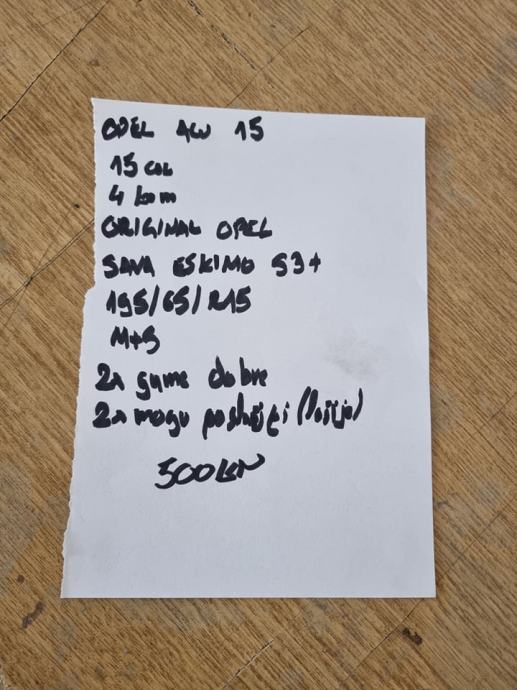 OPEL AW 15
15 COL
4 kom
ORIGINAL OPEL
SAVA ESKIMO S3+
195/65/R15
M+S
2x gume dobre
2x mogu poslužiti (lošije)
500KN